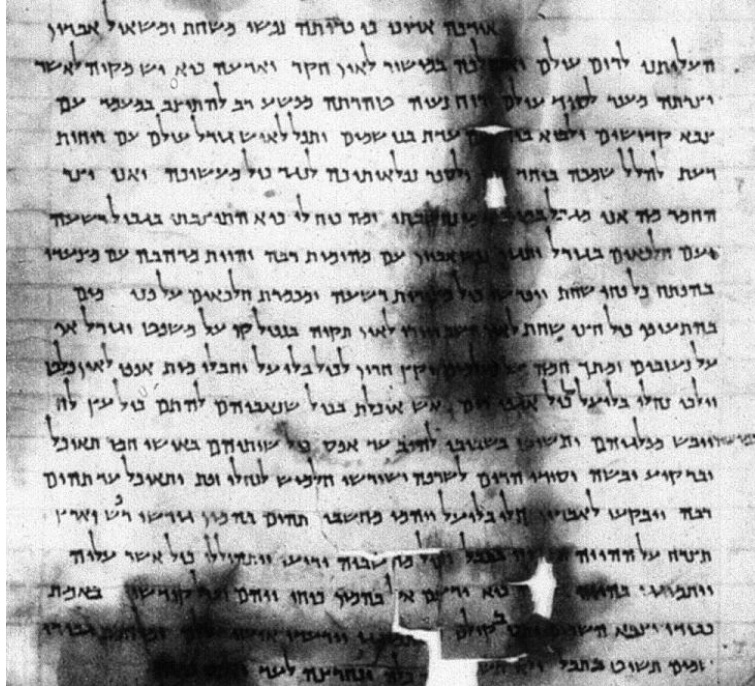 אודכה אדוני כי פדיתה נפשי משחת ומשאול אבדון
העליתני לרום עולם ואתהלכה במישור לאין חקר ואדעה כיא יש מקוה לאשר
יצרתה מעפר לסוד עולם ורוח נעוה טהרתה מפשע רב להתיצב במעמד עם
צבא קדושים ולבוא עם עדת בני שמים ותפל לאיש גורל עולם עם רוחות
דעת להלל שמכה ביחד ולספר נפלאותיכה לנגד כול מעשיכה ואני יצר
החמר מה אני מגבל במים נחשבתי ומה כוח לי כיא התיצבתי בגבול רשעה
ועם חלכאים בגורל ותגור נפש אביון עם מהומות רבה והוות מדהבה עם מצעדי
בהפתח כל פחי שחת ויפרשו כול מצודות רשעה ומכמרת חלכאים על פני מים
בהתעופף כול חצי שחת לאין השב ויורו לאין תקוה בנפול קו על משפט וגורל אף
על נעזבים ומתך חמה על נעלמים וקץ חרון לכול בליעל וחבלי מות אפפו לאין פלט
וילכו נחלי בליעל על כול אגפי רום באש אוכלת בכול שנאביהם להתם כול עץ לח
ויבש מפלגיהם ותשוט בשביבי להוב עד אפס כול שותיהם באושי חמר תאוכל
וברקיע יבשה יסודי הרים לשרפה ושורשי חלמיש לנחלי זפת ותאוכל עד תהום
רבה ויבקעו לאבדון נחלי בליעל ויהמו מחשבי תהום בהמון גורשי רפש וארץ
תצרח על ההווה הנהיה בתבל וכול מחשביה ירועו ויתהוללו כול אשר עליה
ויתמוגגו בהווה כיא ירעם אל בהמון כוחו ויהם זבול קודשו באמת
כבודו וצבא השמים יתנו קולם ויתמוגגו וירעדו אושי עולם ומלחמת גבורי
שמים תשוט בתבל ולא כלה ונחרצה לעד